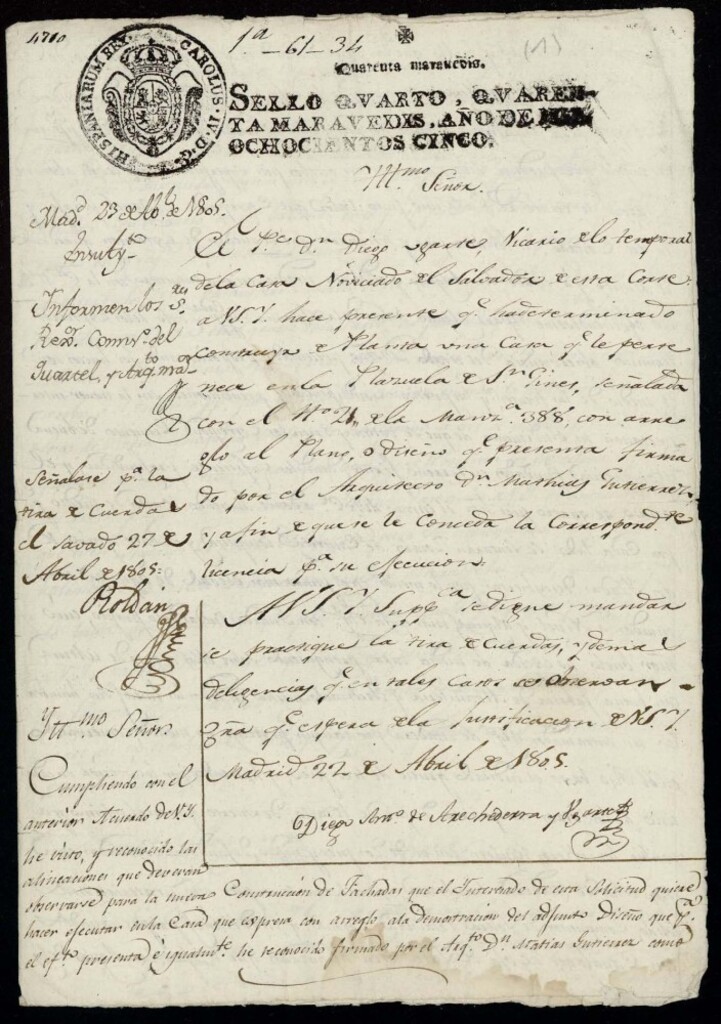 4710
1ª-61-34
(1)
HISPANIARUM REX CAROLUS·IV·D·G·
Quarenta maravedis.
SELLO QVARTO, QVAREN-
TA MARAVEDIS, AÑO DE MIL
OCHOCIENTOS CINCO.
Yltt.mo Señor.
Mad.d 23 de Ab.l de 1805.
En su Ay.to
Informen los s.res
Rex.or Comis.o del
Quartel, y Arq.to m.or
Señalase p.a la
tira de Cuerdas
el savado 27 de
Abril de 1805.
Roldán
El P.e d.n Diego Ugarte, Vicario de lo temporal
de la Casa Noviciado del Salvador de esta Corte.
a V.S.Y. hace presente q.e ha determinado
construir de Planta una Casa q.e le perte
nece en la Plazuela de S.n Gines, señalada
con el N.o 21, de la Manz.a 388, con arre
glo al Plano, o diseño q.e presenta firma
do por el Arquitecto d.n Mathias Gutierrez
y a fin de que se le conceda la Correspond.te
licencia p.a su ejecucion.
A V.S.Y. Supp.ca se digne mandar
se practique la tira de Cuerdas, y demas
diligencias q.e en tales casos se observan
gra q.e espera de la Justificacion de V.S.Y.
Madrid 22 de Abril de 1805.
Diego Ant.o de Arechederra y Ugarte
Yltt.mo Señor.
Cumpliendo con el
anterior Acuerdo de V.Y.
he visto, y reconocido las
alineaciones que deveran
observarse para la nueva Construcción de Fachadas que el Interesado de esta Solicitud quiere
hacer ejecutar en la Casa que expresa con arreglo a la demostración del adjunto Diseño que p.a
el ef.to presenta è igualm.te he reconocido firmado por el Arq.to D.n Matias Gutierrez como